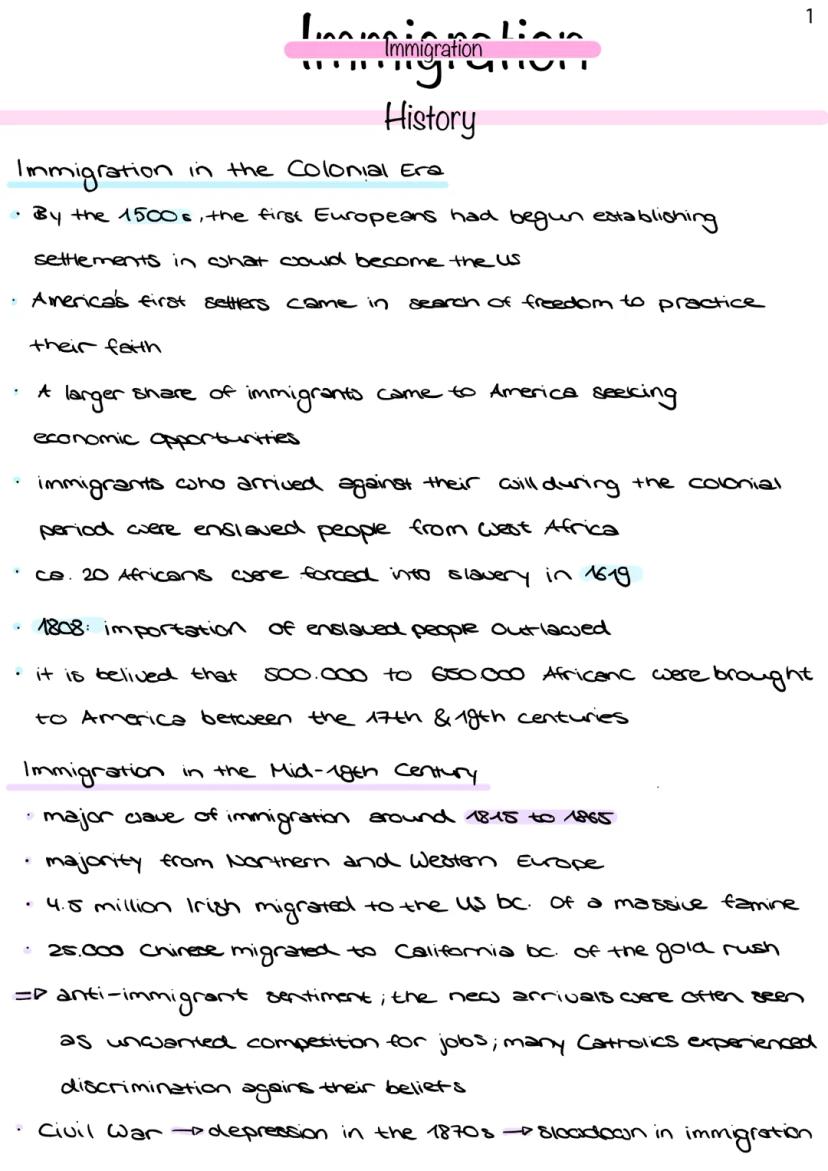 1
Immigration
Immigration
History
Immigration in the Colonial Era
• By the 1500s, the first Europeans had begun establishing
settlements in what would become the US
• America's first settlers came in search of freedom to practice
their faith
• A larger share of immigrants came to America seeking
economic opportunities
• immigrants who arrived against their will during the colonial
period were enslaved people from West Africa
• ca. 20 Africans were forced into slavery in 1619
• 1808: importation of enslaved people outlawed
• it is belived that 500.000 to 650.000 Africans were brought
to America between the 17th & 19th centuries
Immigration in the Mid-19th Century
• major wave of immigration around 1815 to 1865
• majority from Northern and Western Europe
• 4.5 million Irish migrated to the US bc. of a massive famine
• 25.000 Chinese migrated to California bc. of the gold rush
=> anti-immigrant sentiment; the new arrivals were often seen
as unwanted competition for jobs; many Catholics experienced
discrimination agains their beliefs
• Civil War → depression in the 1870s → slowdown in immigration